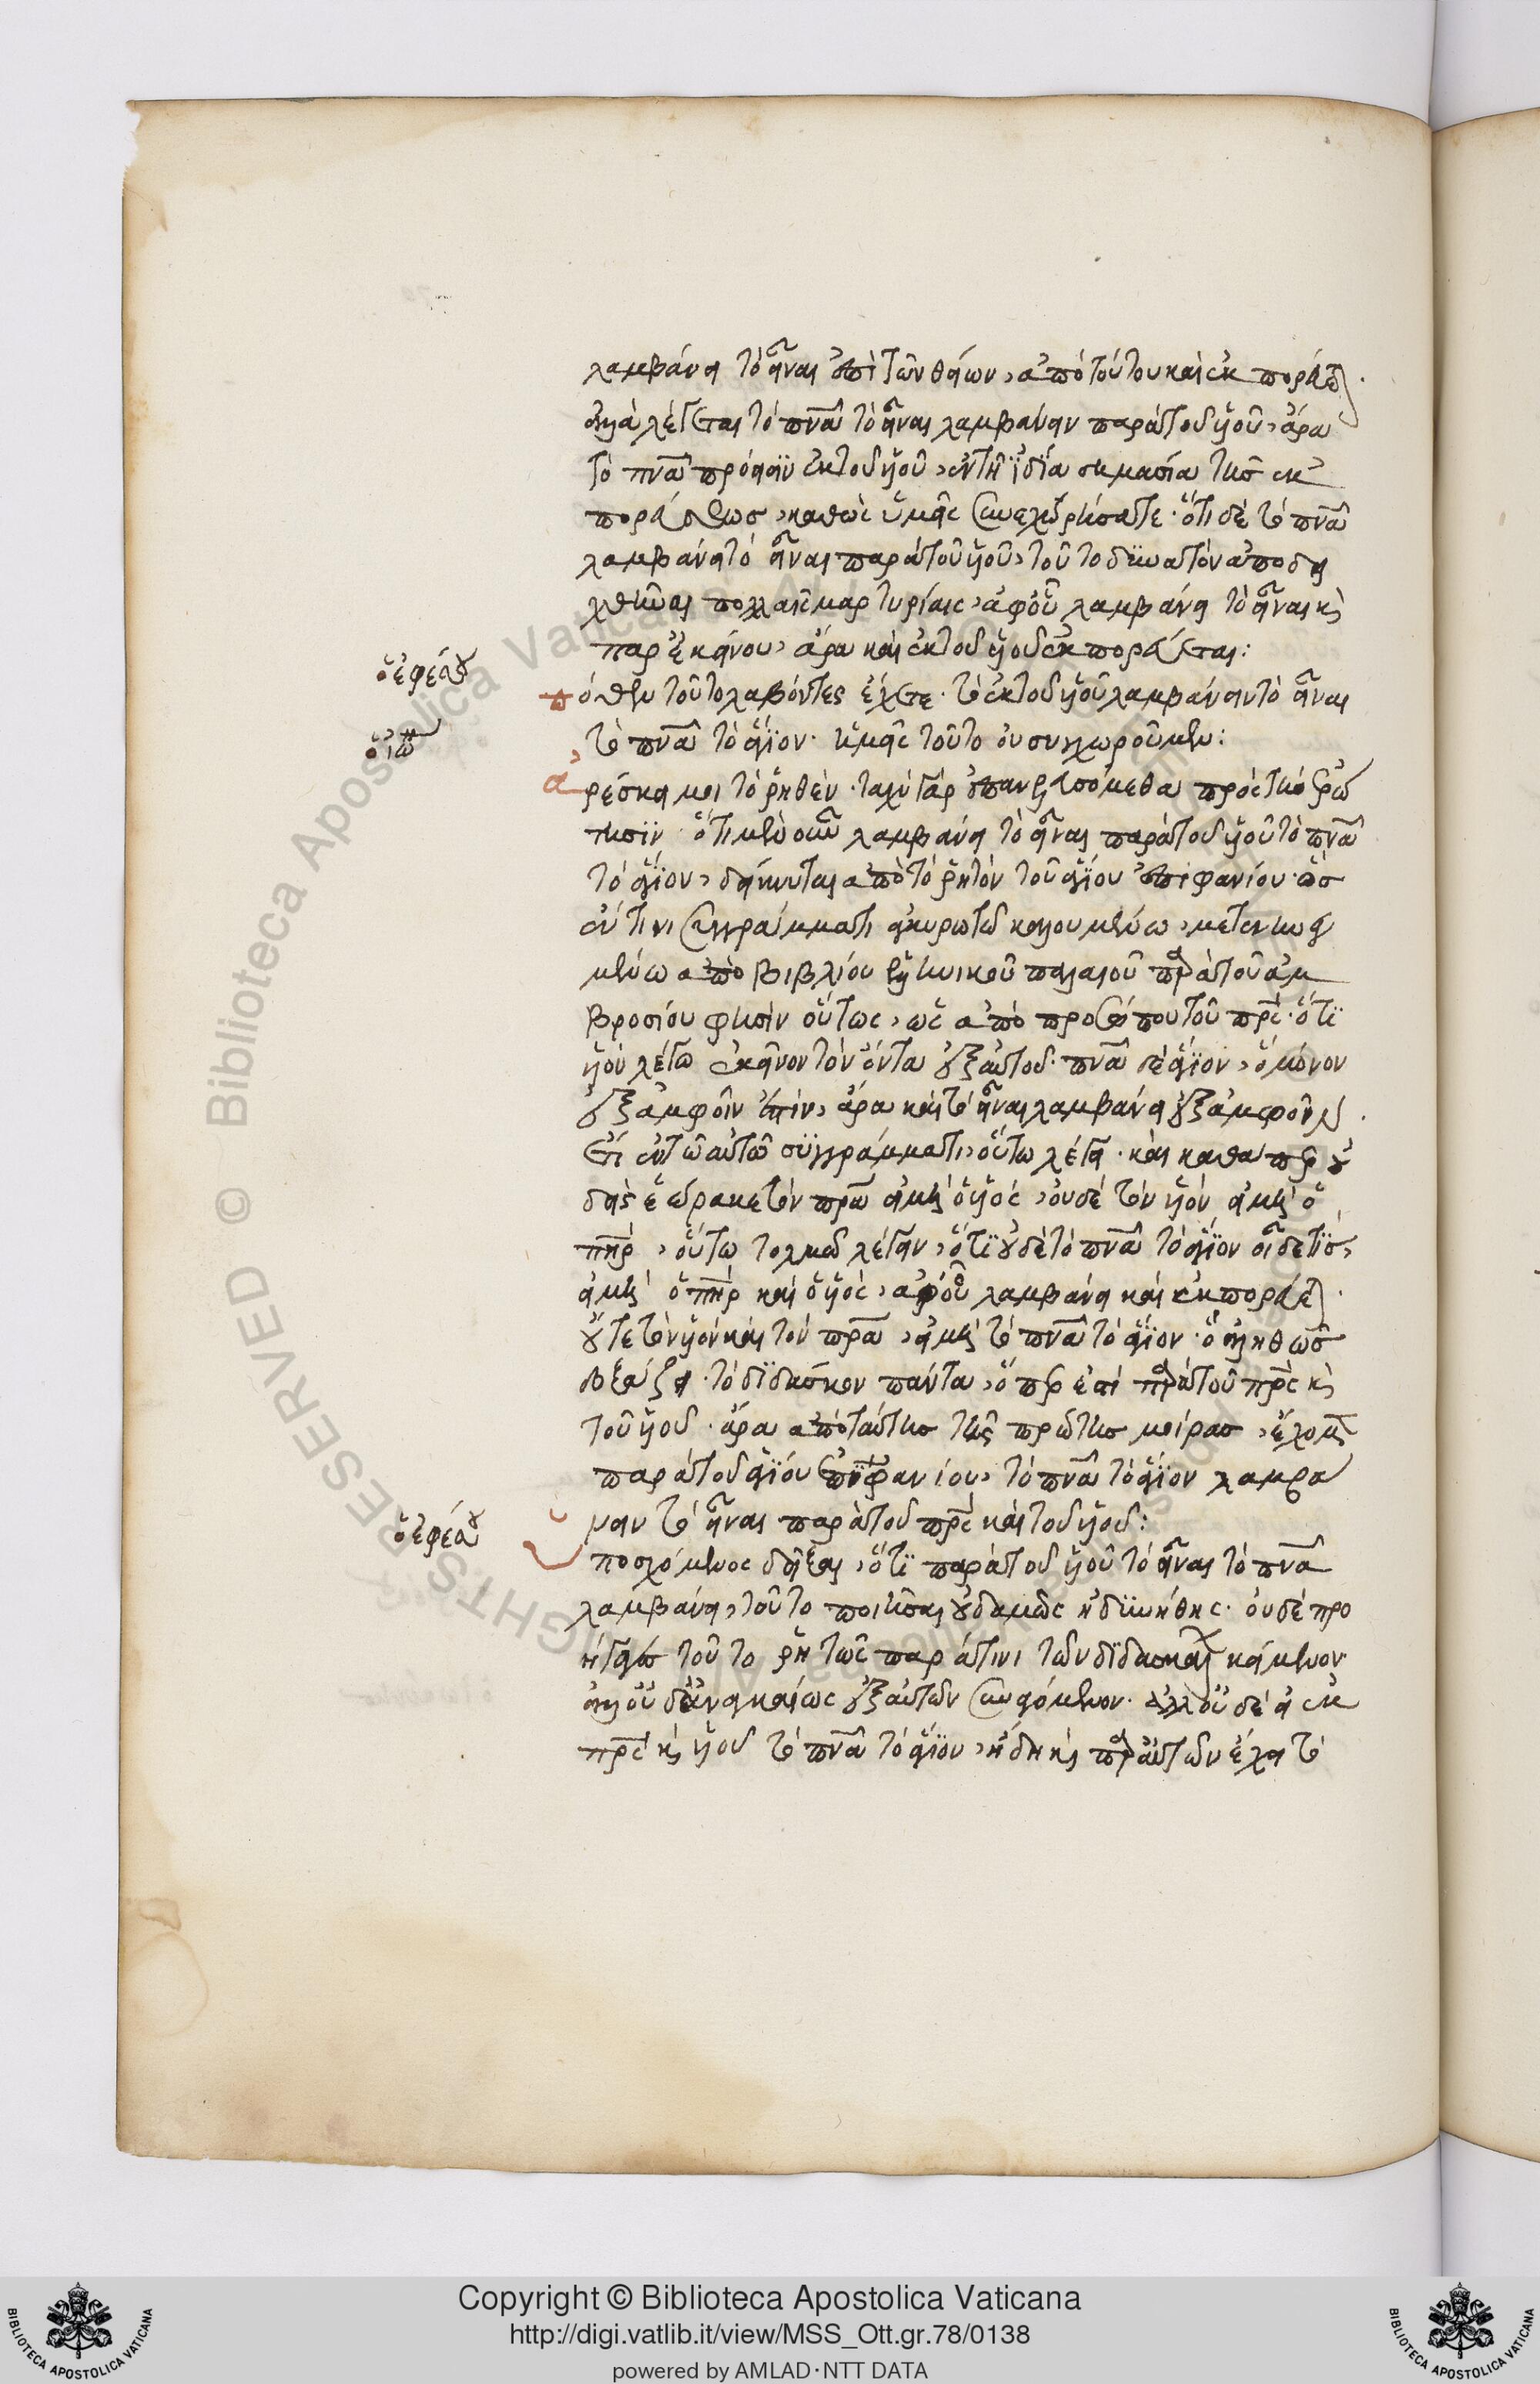 λαμβάνει τὸ εἶναι ἐπὶ τῶν θείων, ἀπὸ τούτου καὶ ἐκπορεύεται.
ἀλλὰ λέγεται τὸ πνα τὸ εἶναι λαμβάνειν παρὰ τοῦ υἱοῦ, ἄρα
τὸ πνα πρόεισιν ἐκ τοῦ υἱοῦ, ἐν τῇ ἰδία σημασία τῆς ἐκ
πορεύσεως, καθὼς ὑμεῖς συνεχωρήσατε. ὅτι δὲ τὸ πνα
λαμβάνει τὸ εἶναι παρὰ τοῦ υἱοῦ, τοῦτο δυνατὸν ἀποδει
χθῆναι πολλαῖς μαρτυρίαις, ἀφοῦ λαμβάνει τὸ εἶναι κ
παρ ἐκείνου, ἄρα καὶ ἐκ τοῦ υἱοῦ ἐκπορεύεται:
ὁ ἐφέσου
πόθεν τοῦτο λαβόντες ἔχετε. τὸ ἐκ τοῦ υἱοῦ λαμβάνειν τὸ εἶναι
ὁ ἰω
τὸ πνα τὸ ἅγιον. ἡμεῖς τοῦτο οὐ συγχωροῦμεν:
ἀρέσκει μοι τὸ ῥηθέν. ταχὺ γὰρ ἐπανηξόμεθα πρὸς τὴν ἐρώ
τησιν. ὅτι μὲν οὖν λαμβάνει τὸ εἶναι παρὰ τοῦ υἱοῦ τὸ πνα
τὸ ἅγιον, δείκνυται ἀπὸ τὸ ῥητὸν τοῦ ἁγίου ἐπιφανίου. ὃς
ἔν τινι συγγράμματι ἀγκυρωτῷ καλουμένω, μετενηνεγ
μένω ἀπὸ βιβλίου ἑλληνικοῦ παλαιοῦ παρὰ τοῦ ἀμ
βροσίου φησὶν οὕτως, ὡς ἀπὸ προσώπου τοῦ πρς. ὅτι
υἱὸν λέγω ἐκεῖνον τὸν ὄντα ἐξ αὐτοῦ. πνα δὲ ἅγιον, ὃ μόνον
ἐξ ἀμφοῖν ἐστίν, ἄρα καὶ τὸ εἶναι λαμβάνει ἐξ ἀμφοῖν.
ἔτι ἐν τῶ αὐτῶ συγγράμματι, οὕτω λέγει. καὶ καθάπερ οὐ
δεὶς ἑώρακε τὸν πρα εἰμὴ ὁ υἱός, οὐδὲ τὸν υἱὸν εἰμὴ ὁ
πηρ, οὕτω τολμῶ λέγειν, ὅτι οὐδὲ τὸ πνα τὸ ἅγιον οἶδε τίς,
εἰμὴ ὁ πηρ καὶ ὁ υἱός, ἀφ' οὗ λαμβάνει καὶ ἐκπορεύεται.
οὔτε τὸν υἱὸν καὶ τὸν πρα, εἰμὴ τὸ πνα τὸ ἅγιον. ὃ ἀληθῶς
δοξάζει. τὸ διδάσκον πάντα, ὅπερ ἐστὶ παρὰ τοῦ πρς κ
τοῦ υἱοῦ. ἄρα ἀπὸ ταύτης τῆς πρώτης μοίρας, ἔχομεν
παρὰ τοῦ ἁγίου ἐπιφανίου, τὸ πνα τὸ ἅγιον λαμβά
νειν τὸ εἶναι παρὰ τοῦ πρς καὶ τοῦ υἱοῦ:
ὁ ἐφέσου
ὑποσχόμενος δεῖξαι, ὅτι παρὰ τοῦ υἱοῦ τὸ εἶναι τὸ πνα
λαμβάνει, τοῦτο ποιῆσαι οὐδαμῶς ἠδυνήθης. οὐδὲ προ
ήγαγες τοῦτο ῥητῶς παρά τινι τῶν διδασκάλων κείμενον
ἀλλ' οὐδ' ἀναγκαίως ἐξ αὐτῶν συναγόμενον. ἀλλ' οὐδὲ εἰ ἐκ
πρς κ υἱοῦ τὸ πνα τὸ ἅγιον, ἤδη κ παρ' αὐτῶν ἔχει τὸ
Copyright © Biblioteca Apostolica Vaticana
http://digi.vatlib.it/view/MSS_Ott.gr.78/0138
powered by AMLAD·NTT DATA